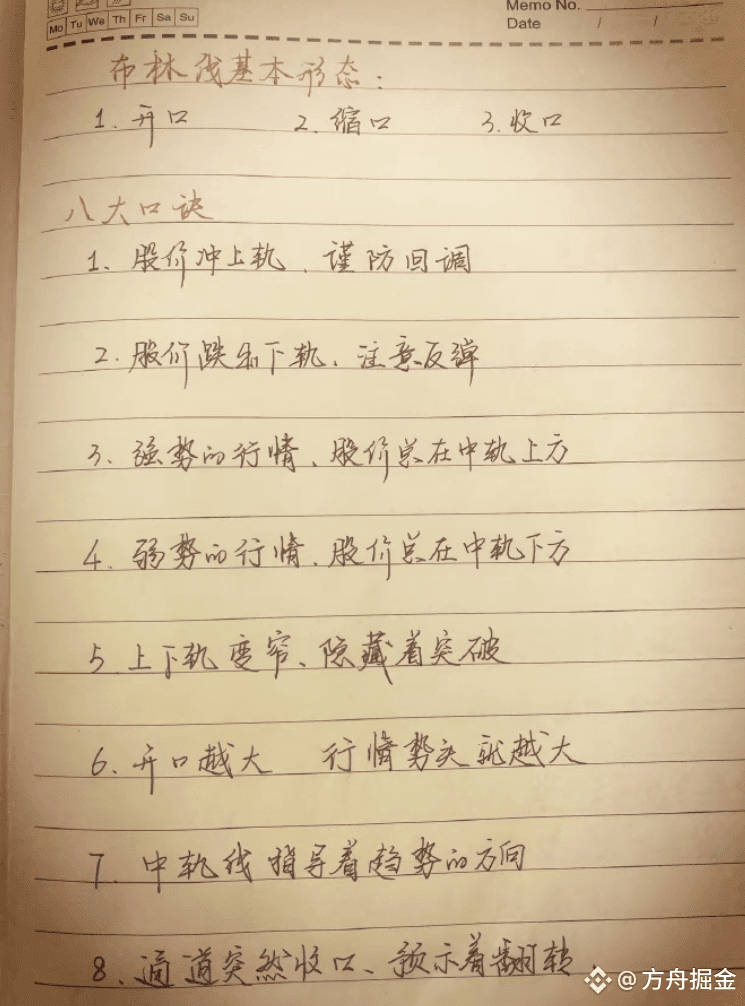 Memo No.
Mo Tu We Th Fr Sa Su
Date / /
布林线基本形态:
1. 开口 2. 缩口 3. 收口
八大口诀
1、股价冲上轨、谨防回调
2. 股价跌到下轨、注意反弹
3. 强势的行情、股价总在中轨上方
4. 弱势的行情、股价总在中轨下方
5 上下轨变窄、隐藏着突破
6. 开口越大 行情势头就越大
7. 中轨线指导着趋势的方向
8、通道突然收口、预示着翻转.
@方舟掘金